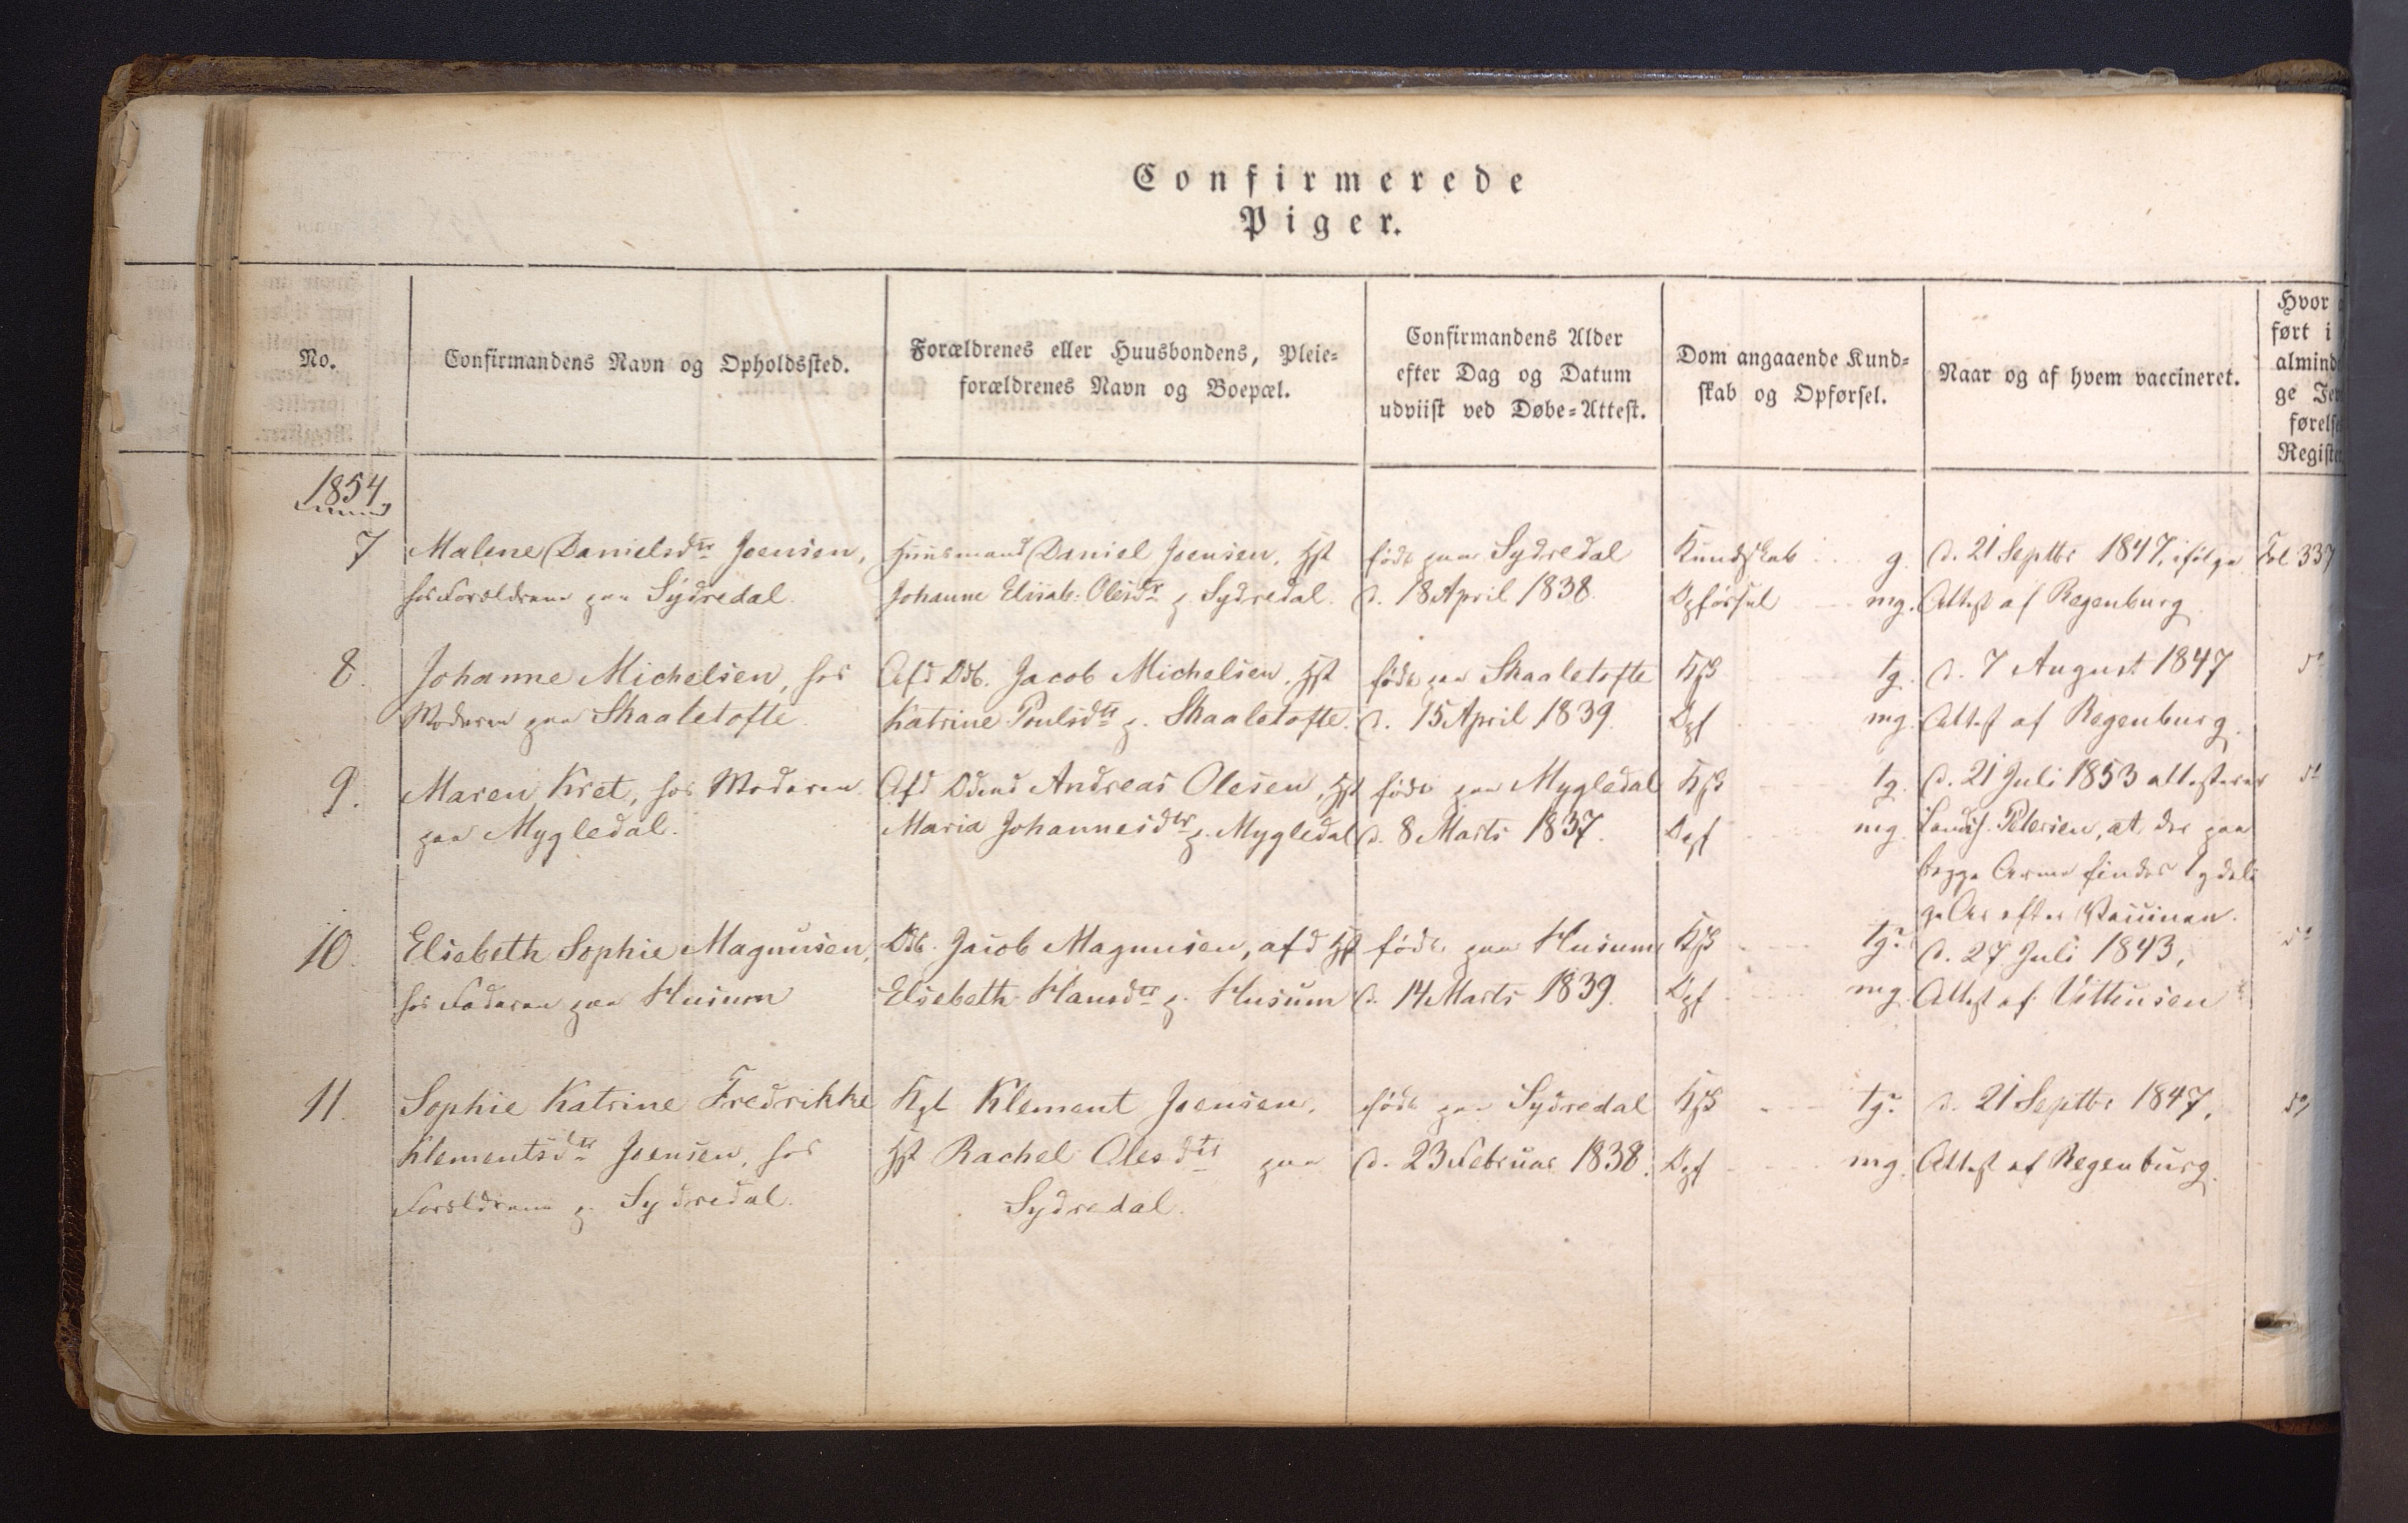 Confirmerede
Piger.
No.
Confirmandens Navn og Opholdssted.
Forældrenes eller Huusbondens, Pleie-
forældrenes Navn og Boepæl.
Confirmandens Alder
efter Dag og Datum
udviist ved Døbe-Attest.
Dom angaaende Kund-
skab og Opførsel.
Naar og af hvem vaccineret.
Hvor
ført i
almind
ge Jev
førels
Regist
1854
7
Malene Danielsdtr Joensen,
hos Forældrene paa Sydredal.
Huusmand Daniel Joensen, Hst
Johanne Elisab: Olesdtr p. Sydredal.
født paa Sydredal
d. 18 April 1838.
Kundskab g.
Opførsel mg.
d. 21 Septbr 1847, ifølge
Attest af Regenburg
Fol 337
8.
Johanne Michelsen, hos
Moderen paa Skaaletofte.
Afd Odb. Jacob Michelsen, Hst
Katrine Poulsdtr p. Skaaletofte.
født paa Skaaletofte
d. 15 April 1839.
Ksb tg.
Opf mg.
d. 7 August 1847
Attest af Regenburg.
do
9.
Maren Kret, hos Moderen
paa Mygledal.
Afd Andreas Olesen, Hst
Maria Johannesdtr p. Mygledal
født paa Mygledal
d. 8 Marts 1837.
Ksb tg.
Opf mg.
d. 21 Juli 1853 attesterer
Landsf. Petersen, at der paa
begge Arme findes tydeli
ge Ar efter Vaccinen.
do
10.
Elsebeth Sophie Magnusen,
hos Faderen paa Husum
Odb. Jacob Magnusen, afd Hst
Elsebeth Hansdtr p. Husum
født paa Husum
d. 14 Marts 1839.
Ksb tg?
Opf mg.
d. 27 Juli 1843,
Attest af
do
11.
Sophie Katrine Fredrikke
Klementsdtr Joensen, hos
Forældrene p. Sydredal.
Kgl Klement Joensen,
Hst Rachel Olesdtr paa
Sydredal.
født paa Sydredal
d. 23 Februar 1838.
Ksb tg?
Opf mg.
d. 21 Septbr 1847,
Attest af Regenburg.
do